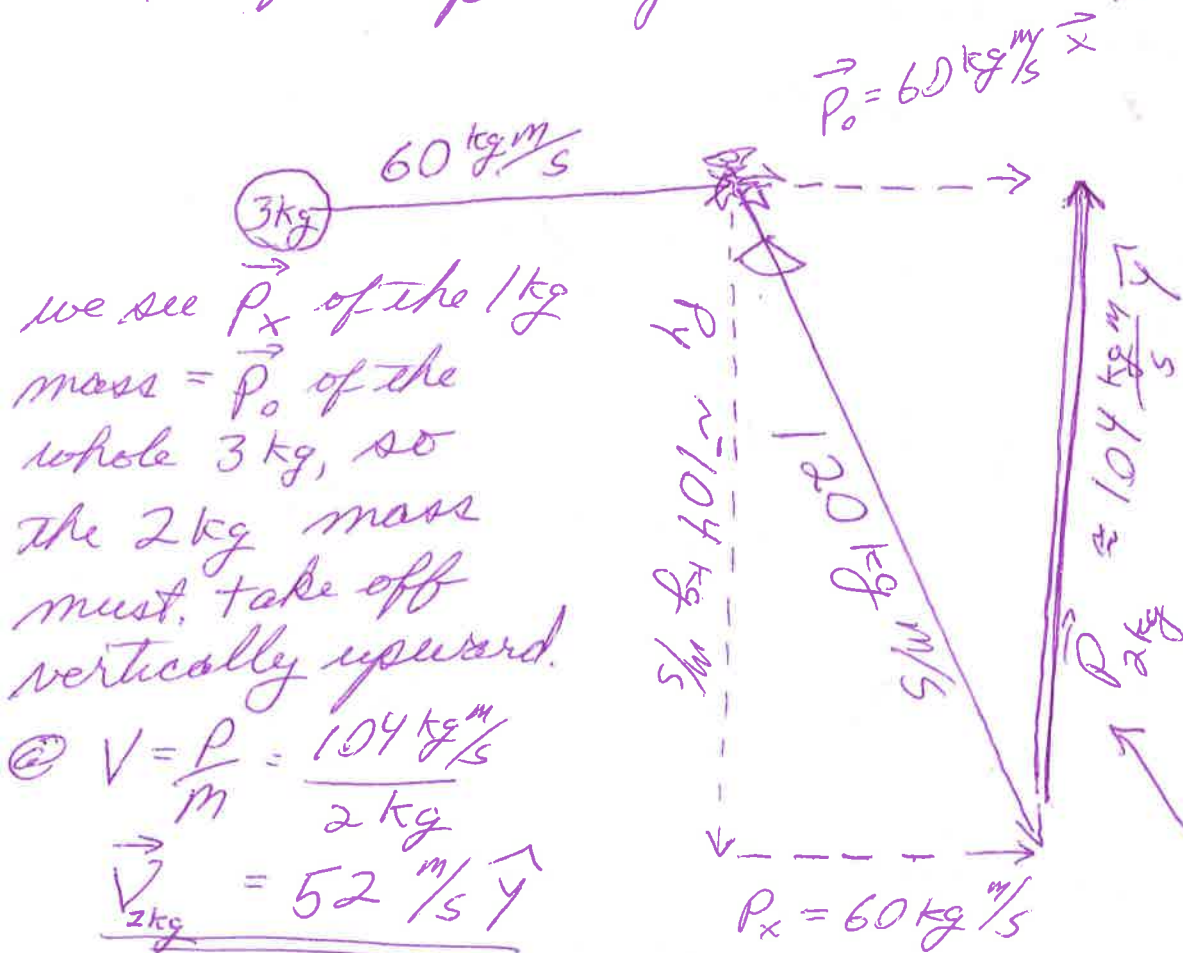 P⃗₀ = 60 kg m/s x⃗
60 kg m/s
3kg
we see P⃗ₓ of the 1kg
mass = P⃗₀ of the
whole 3 kg, so
the 2 kg mass
must, take off
vertically upward.
@ V = P/m = 104 kg m/s / 2 kg
V⃗₂kg = 52 m/s ŷ
Py ≈ 104 kg m/s
120 kg m/s
P⃗ 2kg ≈ 104 kg m/s ŷ
Pₓ = 60 kg m/s